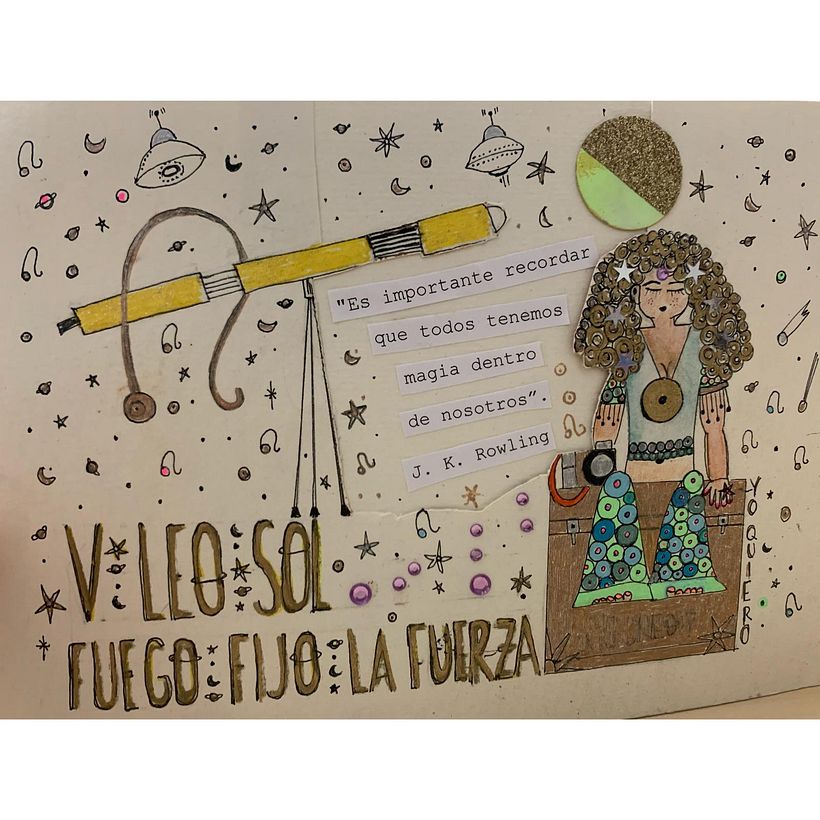 "Es importante recordar
que todos tenemos
magia dentro
de nosotros".
J. K. Rowling
V LEO SOL
FUEGO FIJO LA FUERZA
YO QUIERO